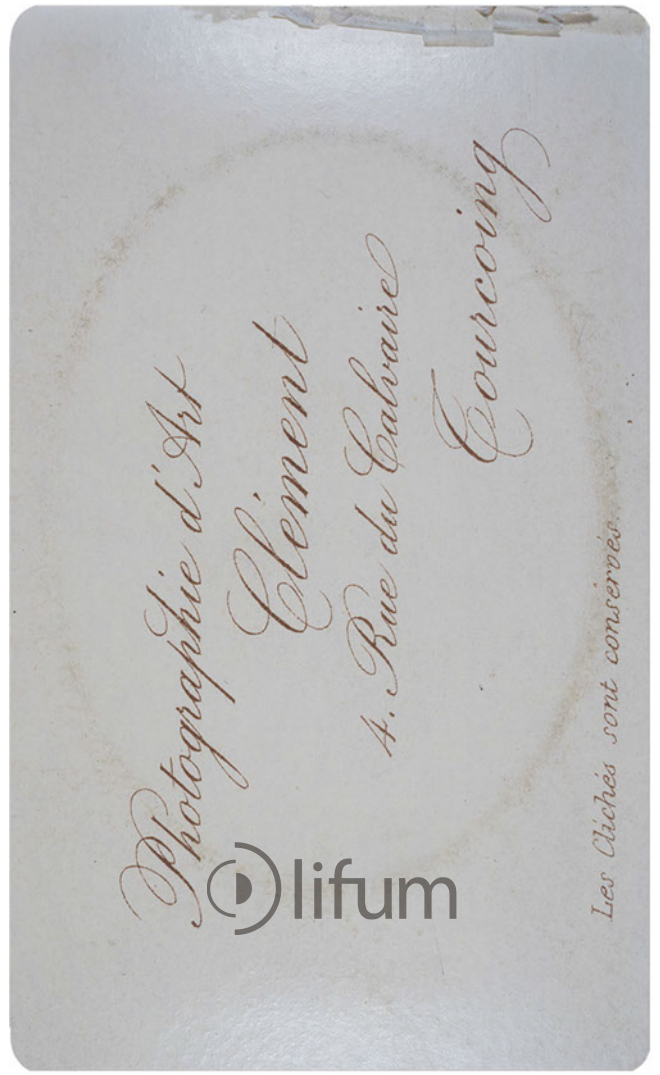 Photographie d'Art
Clément
4. Rue du Calvaire
Tourcoing
Les Clichés sont conservés.
lifum